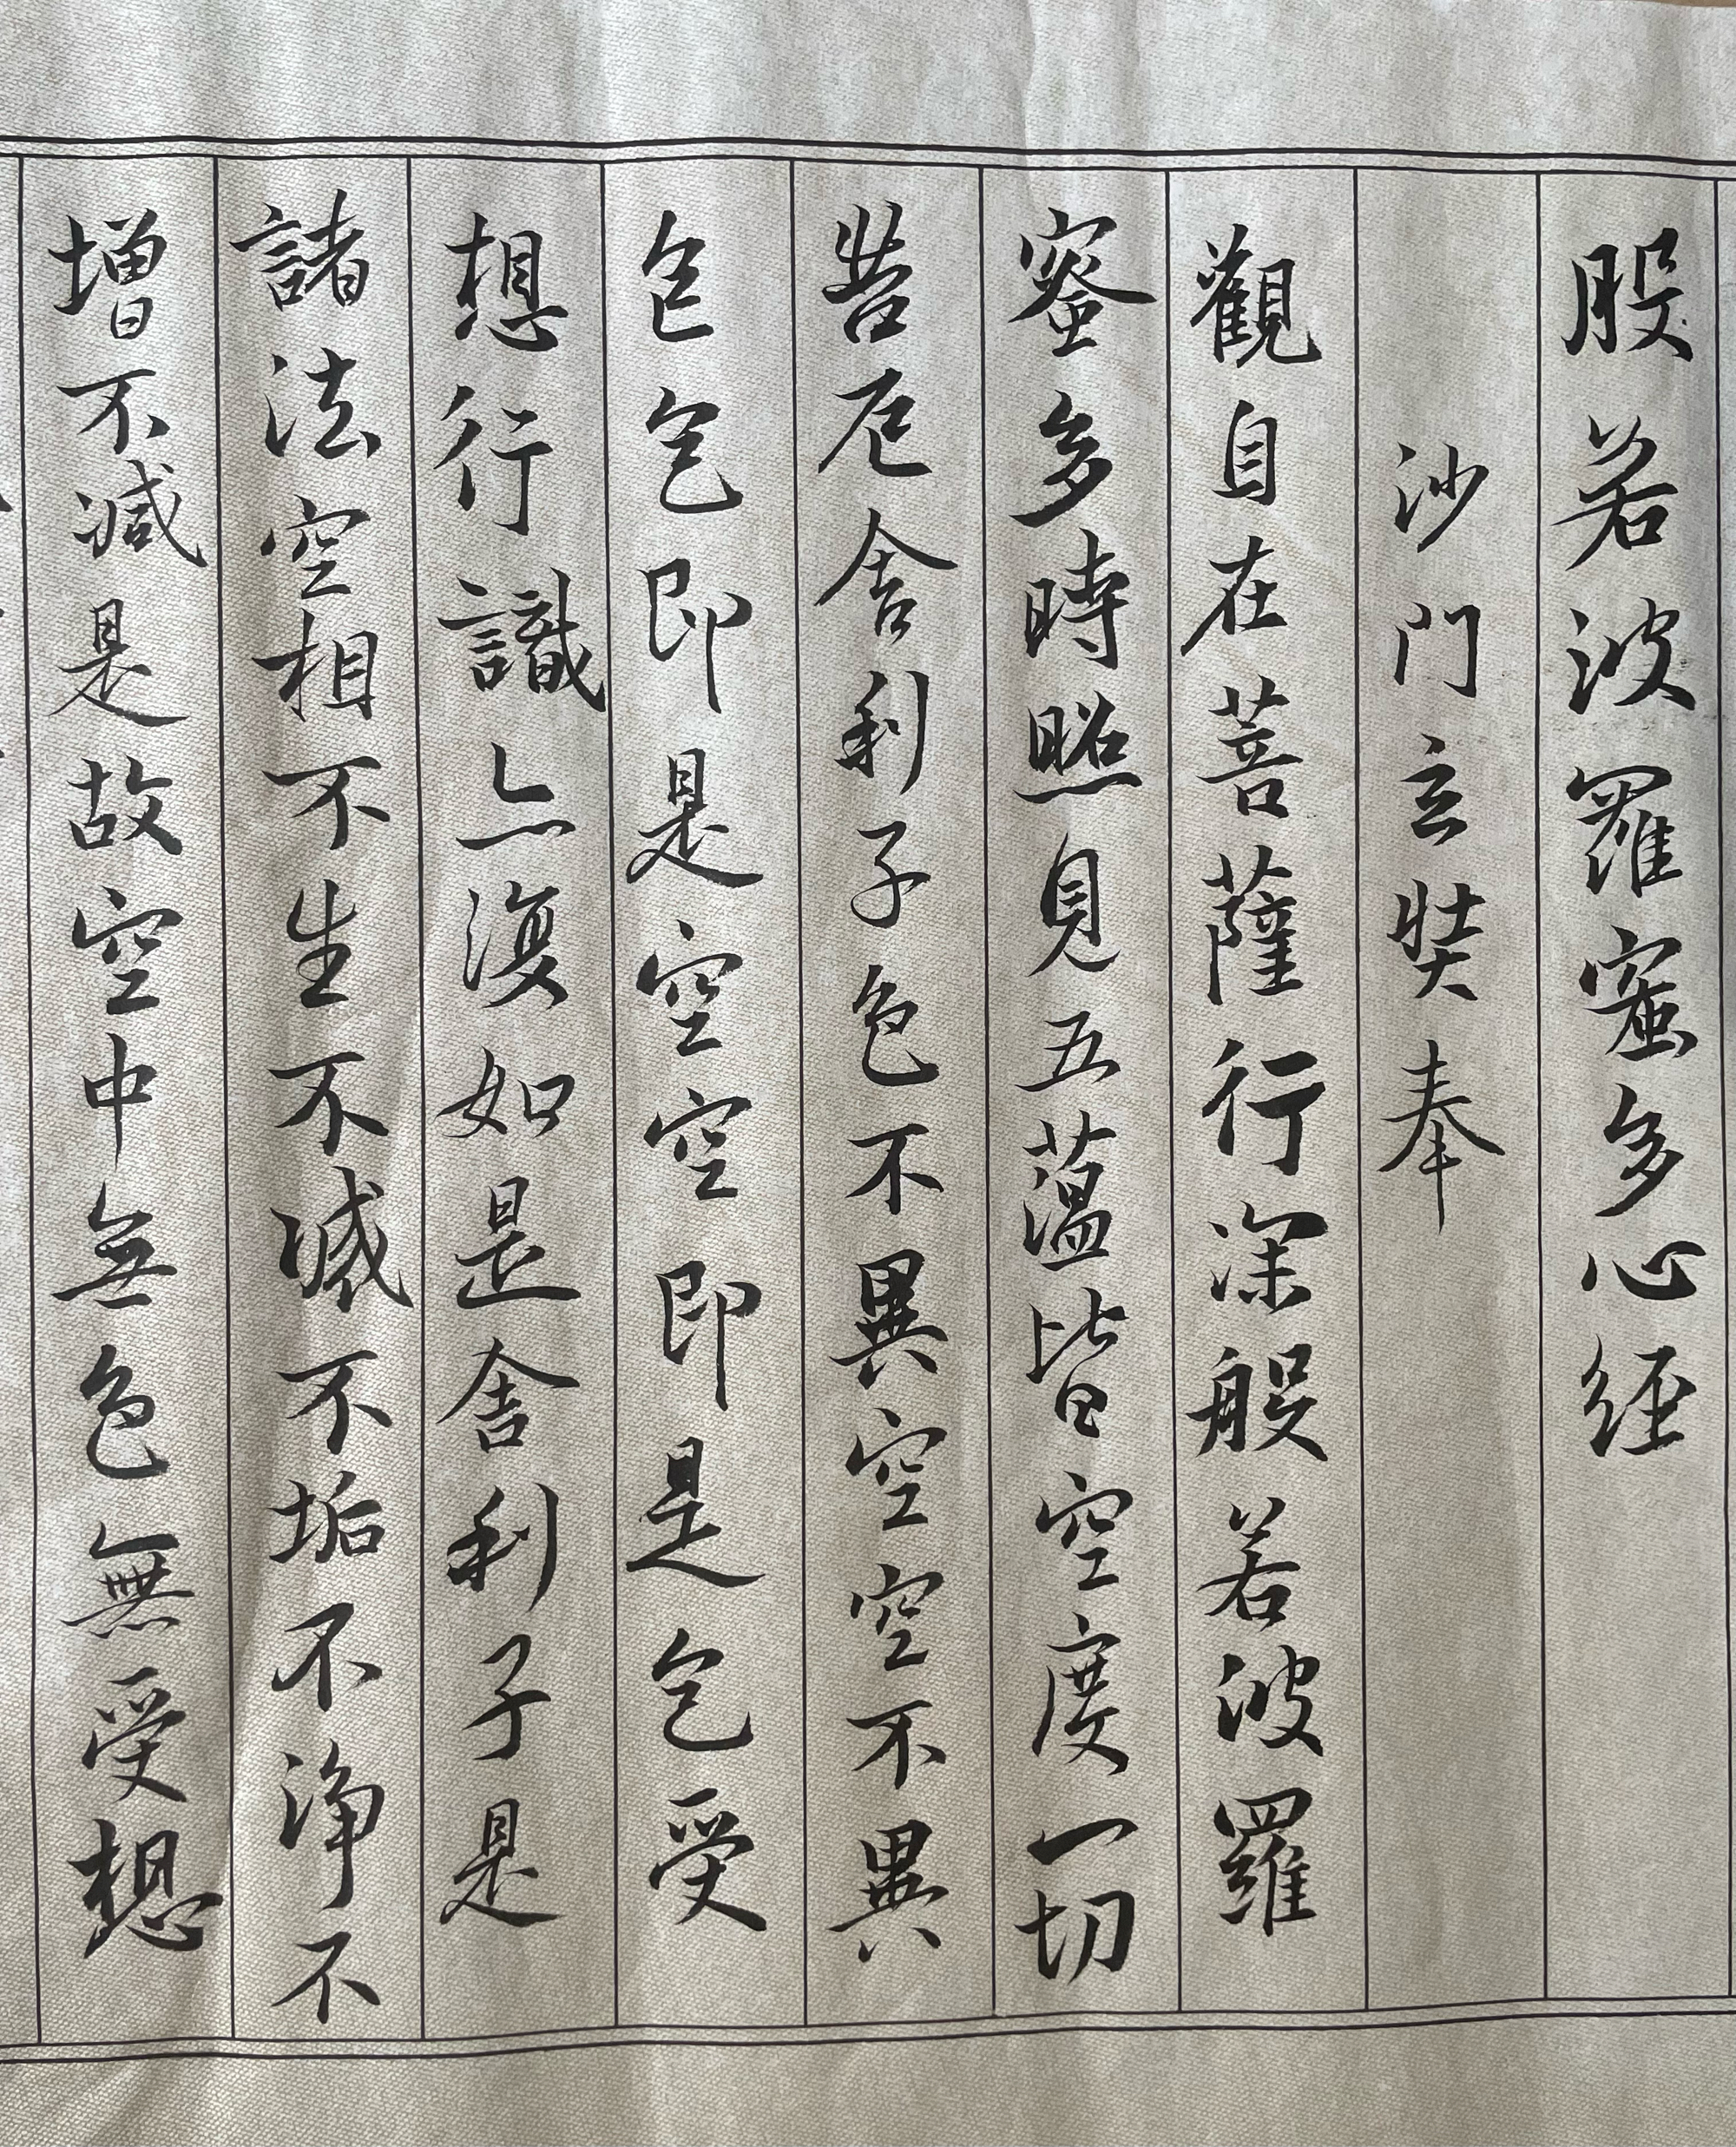 般若波羅蜜多心經
沙門玄奘奉
觀自在菩薩行深般若波羅
蜜多時照見五蘊皆空度一切
苦厄舍利子色不異空空不異
色色即是空空即是色受
想行識亦復如是舍利子是
諸法空相不生不滅不垢不淨不
增不減是故空中無色無受想